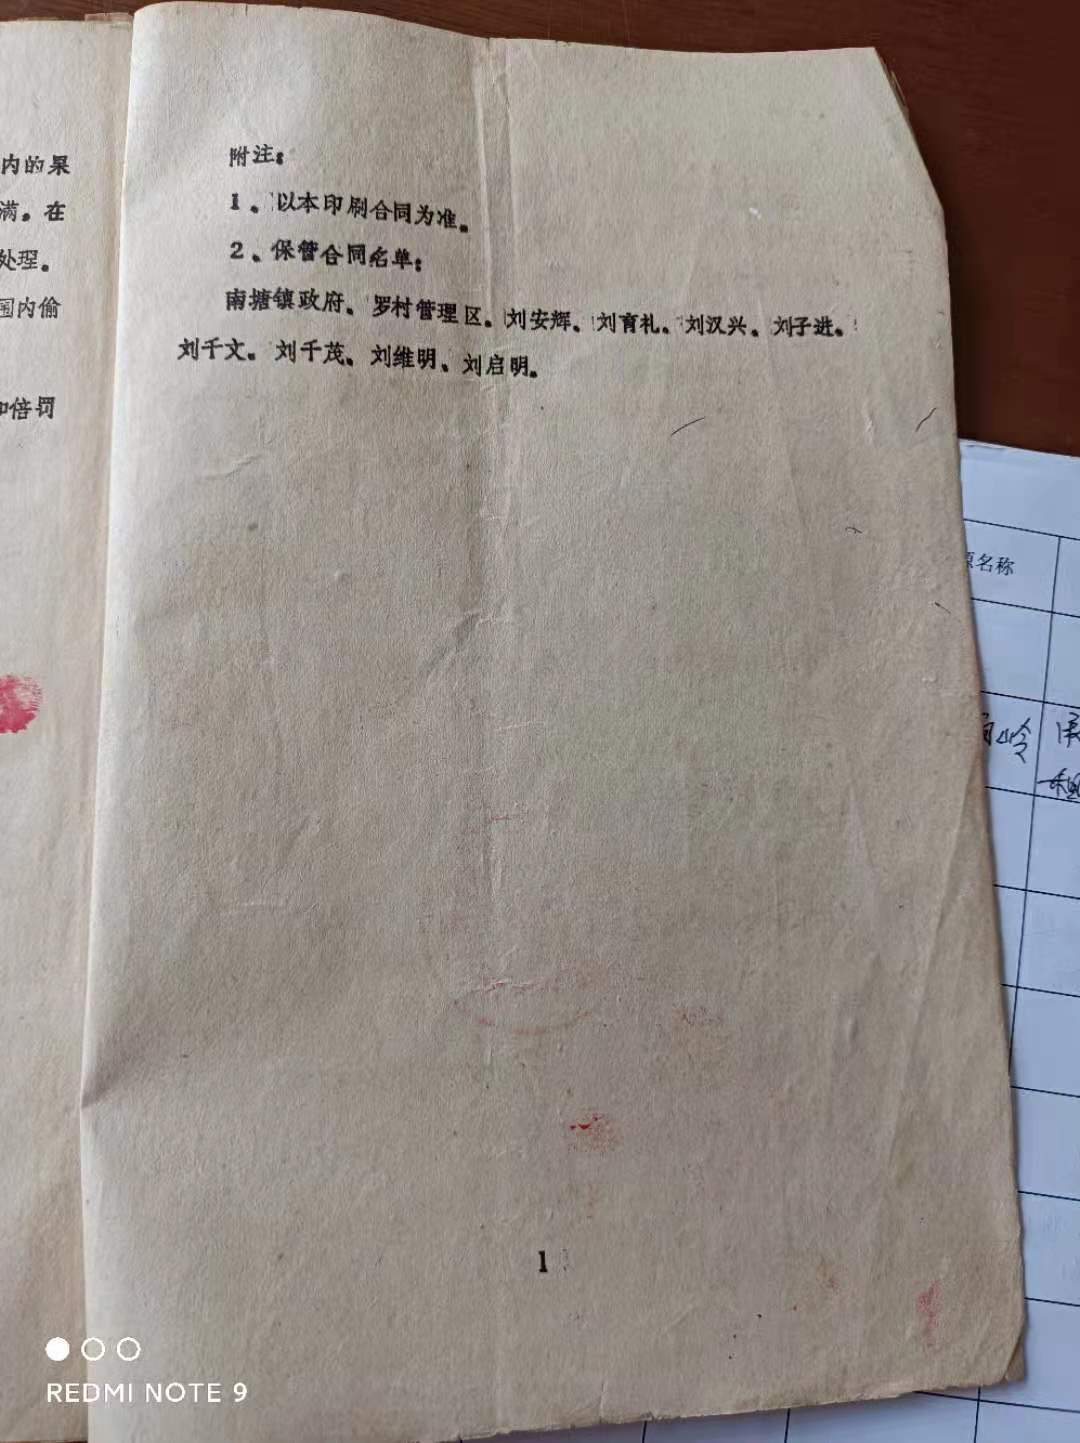 内的果
满。在
处理。
围内偷
倍罚
附注：
1、以本印刷合同为准。
2、保管合同名单：
南塘镇政府、罗村管理区、刘安辉、刘育礼、刘汉兴、刘子进、
刘千文、刘千茂、刘维明、刘启明。
1
名称
岭
REDMI NOTE 9